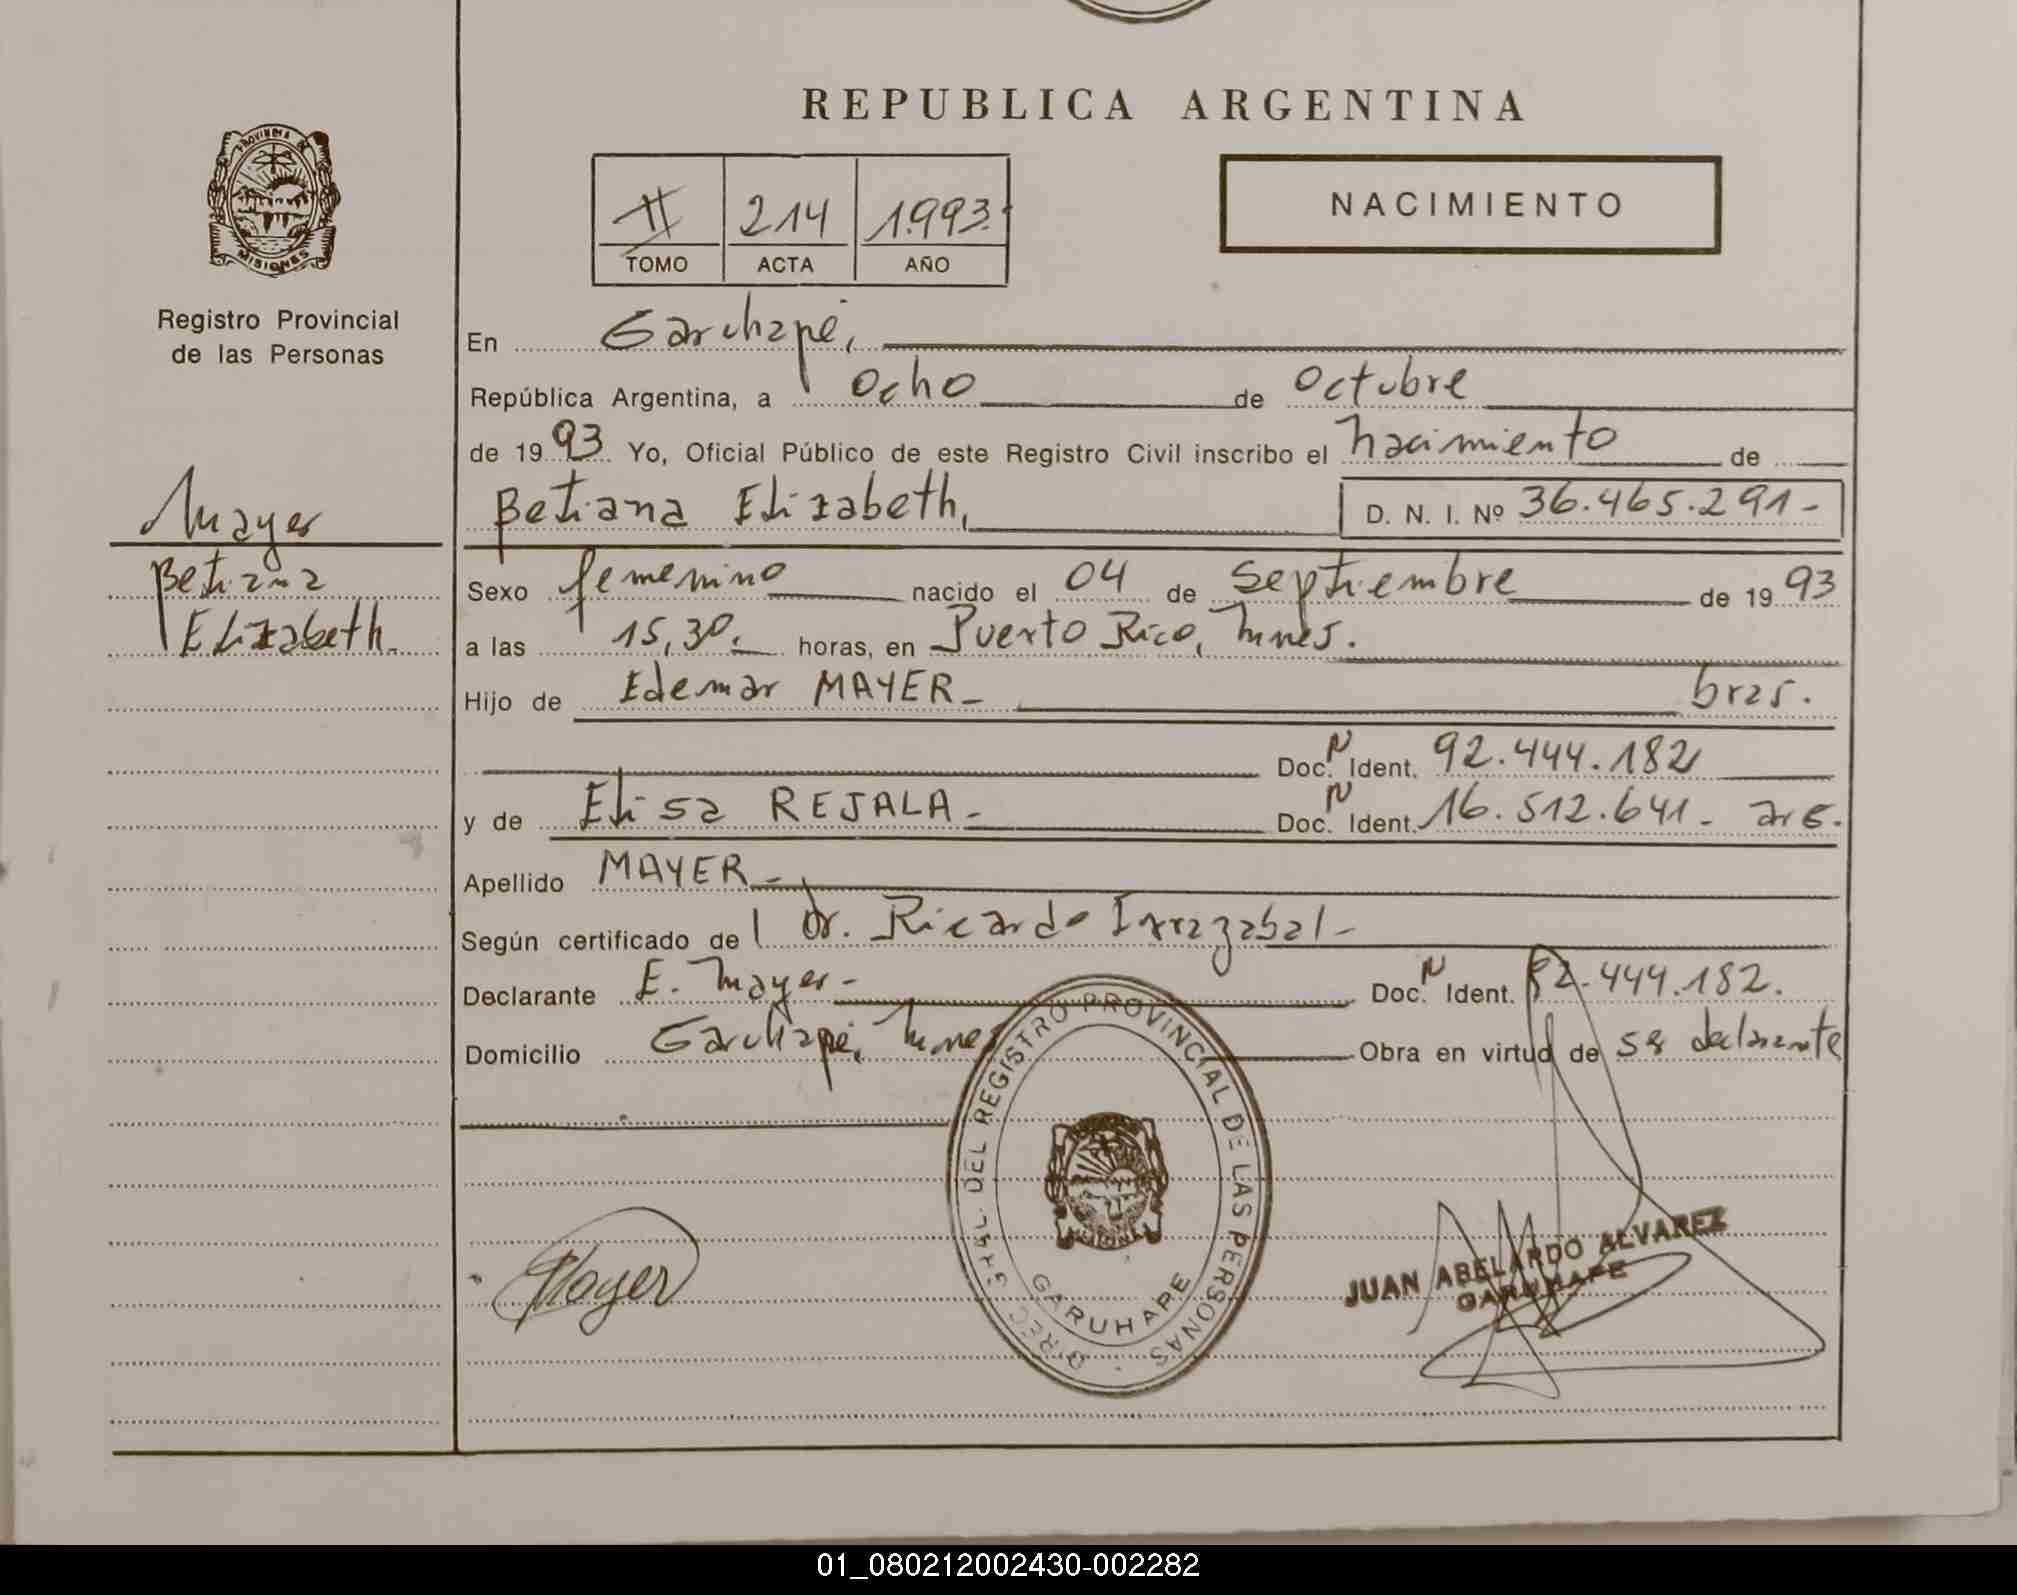 REPUBLICA ARGENTINA
PROVINCIA DE
MISIONES
Registro Provincial
de las Personas
II 214 1.993.
TOMO ACTA AÑO
NACIMIENTO
En Garuhapé,
República Argentina, a ocho de octubre
de 19 93 Yo, Oficial Público de este Registro Civil inscribo el nacimiento de
Betiana Elizabeth, D. N. I. Nº 36.465.291-
Mayer
Betiana
Elizabeth.
Sexo femenino nacido el 04 de septiembre de 19 93
a las 15,30. horas, en Puerto Rico, Mnes.
Hijo de Edemar MAYER- bras.
Doc. N Ident. 92.444.182
y de Elisa REJALA- Doc. N Ident. 16.512.641- arg.
Apellido MAYER-
Según certificado de l Dr. Ricardo Irrazabal-
Declarante E. Mayer- Doc. N Ident. 92.444.182.
Domicilio Garuhapé, Mnes Obra en virtud de ser declarante
DIREC. GRAL. DEL REGISTRO PROVINCIAL DE LAS PERSONAS
GARUHAPE
MISIONES
Mayer
JUAN ABELARDO ALVAREZ
GARUHAPE
01_080212002430-002282